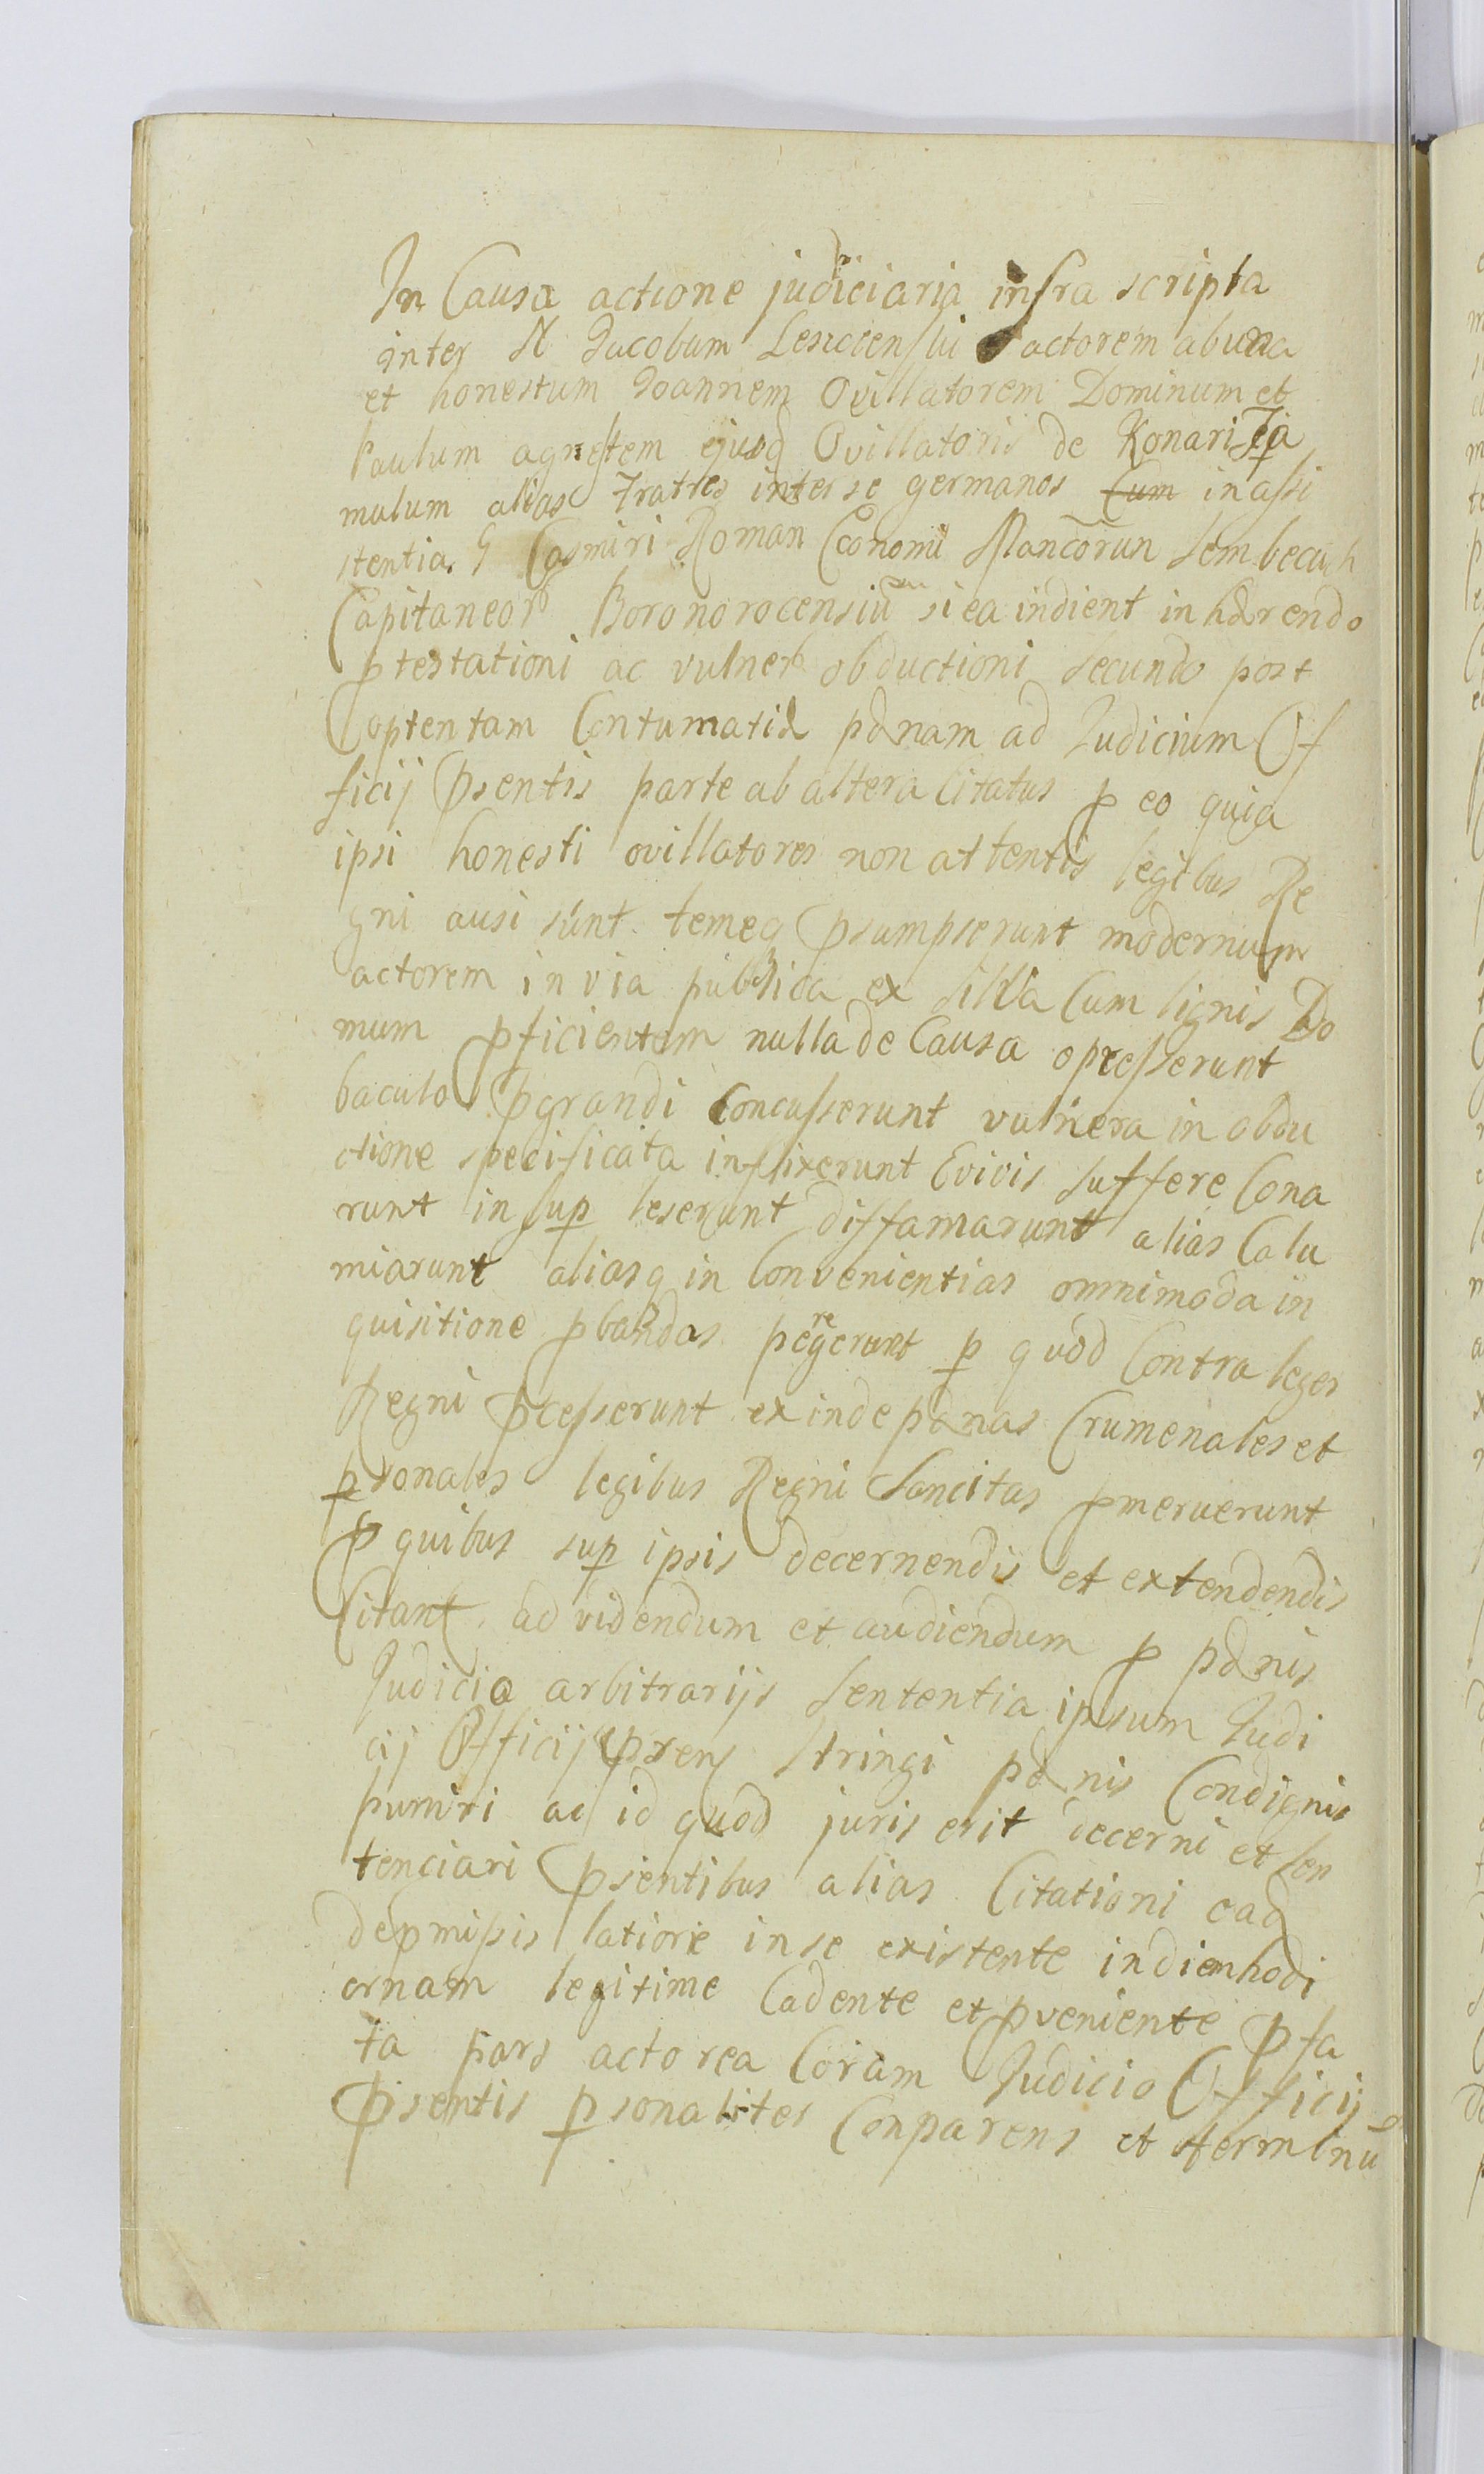 In Causa actione judiciaria infra scripta
inter N Jacobum actorem ab una
et honestum Joannem Ovillatorem Dominum et
Paulum agnestem ejusd Ovillatoris de Konari Fa
mulum alias Fratres inter se germanos Cum in assi
stentia G Casmiri Roman Economi
Capitaneor si ea indient in hærendo
ptestationi ac vulner obductioni secundo post
optentam Contumatiæ pænam ad Judicium Of
ficij Psentis parte ab altera Citatus p eo quia
ipsi honesti ovillatores non attentis legibus Re
gni ausi sunt temeq psumpserunt modernum
actorem in via publica ex silva Cum lignis Do
mum pficientem nulla de Causa opresserunt
baculo pgrandi Concusserunt vulnera in obdu
ctione specificata inflixerunt Evivis suffere Cona
runt in sup leserunt diffamarunt alias Calu
miarunt aliasq in Convenientias omnimoda in
quisitione pbandas peregerunt p quod Contra leges
Regni pcesserunt ex inde pænas Crumenales et
psonales legibus Regni Sancitas pmeruerunt
P quibus sup ipsis decernendis et extendendis
Citant ad videndum et audiendum p pænis
Judicio arbitrarijs Sententia ipsum Judi
cij Officij prens stringi pænis Condignis
puniri ac id quod juris erit decerni et sen
tenciari Psentibus alias Citationi ead
de pmissis latiore in se existente in diem hodi
ernam legitime Cadente et pveniente Pfa
ta pars actorea Coram Judicio Officij
Psentis psonalites Conparens et terminū